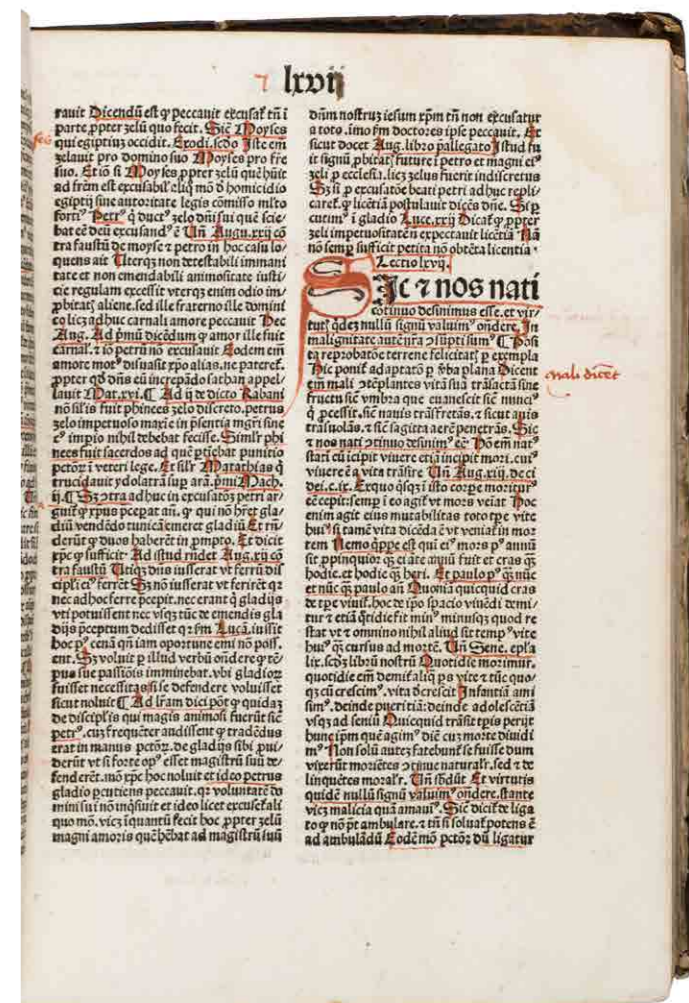 ⁊ lxvij
rauit Dicendū est ꝙ peccauit excusat̄ tn̄ i
parte ꝓpter zelū quo fecit. Sic̄ Moyses
qui egiptiuz occidit. Exodi. scdo Iste em̄
zelauit pro domino suo Moyses pro fre
suo. Et iō si Moyses ꝓpter zelū quē hūit
ad frēm est excusabil̓ eliq̄ mō d̄ homicidio
egiptij sine autoritate legis cōmisso ml̓to
forti⁹ Petr⁹ q̄ duct⁹ zelo dn̄i sui quē scie/
bat eē deū excusand⁹ ē Un̄ Augu. xxij cō
tra faustū de moyse ⁊ petro in hoc casu lo⸗
quens ait Uterqz non detestabili immani
tate et non emendabili animositate iusti⸗
cie regulam excessit vterqz enim odio im⸗
ꝓbitat̄ aliene. sed ille fraterno ille domini
co licz adhuc carnali amore peccauit Hec
Aug. Ad pͥmū dicēdum ꝙ amor ille fuit
carnal̓. ⁊ iō petrū nō excusauit Eodem em̄
amore mot⁹ disuasit xp̄o alias. ne pateret̄.
ꝓpter qd̓ dn̄s eū increpādo sathan appel/
lauit Mat. xvi. Ad ij de dicto Rabani
nō sil̓is fuit phinees zelo discreto. petrus
zelo impetuoso maxīe in p̄sentia mgr̄i sine
c⁹ impio nihil debebat fecisse. Siml̓r phi
nees fuit sacerdos ad quē ꝑtiēbat punitio
pctōꝝ ī veteri lege. Et sil̓r Matathias q̄
trucidauit ydolatrā suꝑ arā. pͥmi Mach.
ij. ¶ Sz ↄtra adhuc in excusatōꝫ petri ar⸗
guit̄ ꝙ xp̄us p̄ceꝑat an̄. ꝙ qui nō hr̄et gla⸗
diū vendēdo tunicā emeret gladiū Et rn̄⸗
derūt ꝙ duos haberēt in ꝓmpto. Et dicit
xp̄c ꝙ sufficit· Ad istud rn̄det Aug. xij cō
tra faustū Utiqz dn̄s iusserat vt ferrū dis
cipl̓i ei⁹ ferrēt Sz nō iusserat vt ferirēt q̄
nec ad hoc ferre p̄cepit. nec erant q̄ gladijs
vti potuissent nec vsqz tūc de emendis gla
dijs p̄ceptum dedisset q̄ ẜm Lucā. iussit
hoc p⁹ cenā qn̄ iam oportune emi nō poss̄.
ent. Sz voluit ꝑ illud verbū ondere ꝙ tē⸗
pus sue passiōis imminebat. vbi gladioꝝ
fuisset necessitas si se defendere voluisset
sicut noluit ¶ Ad lr̄am dici pōt ꝙ quidaz
de discipl̓is qui magis animosi fuerūt sic̄
petr⁹. cuz frequēter audissent ꝙ tradēdus
erat in manus pctōꝝ. de gladijs sibi ꝓui⸗
derūt vt si forte op⁹ esset magistrū suū de⸗
fenderēt. mō xp̄c hoc noluit et ideo petrus
gladio ꝑcutiens peccauit. qꝛ voluntatē do
mini sui nō inq̄siuit et ideo licet excuset̄ ali
quo mō. vicz īquantū fecit hoc ꝓpter zelū
magni amoris quē hēbat ad magistrū suū
dn̄m nostruz iesum xp̄m tn̄ non excusatur
a toto. imo ẜm doctores ip̄e peccauit. Et
sicut docet Aug. libro p̄allegato Istud fu
it signū ꝓbitat̄ future ī petro et magni ei⁹
zeli ꝓ ecclesia. licz zelus fuerit indiscretus
Sz si ꝓ excusatōe beati petri adhuc repli⸗
caret̄. ꝙ licētiā postulauit dicēs dn̄e. Si ꝑ
cutim⁹ ī gladio Luce. xxij Dicat̄ ꝙ ꝓpter
zeli impetuositatē n̄ expectauit licētiā Nā
nō semꝑ sufficit petita nō obtēta licentia·
Lectio lxvij.
Sic ⁊ nos nati
cōtinuo desinimus esse. et vir⸗
tut̄ qdez nullū signū valuim⁹ ondere. In
malignitate autē nr̄a ↄsūpti sum⁹ ¶ Posi
ta reprobatōe terrene felicitat̄ ꝑ exempla
Hic ponit̄ adaptatō ꝑ v̓ba plana Dicent
em̄ mali ↄtēplantes vitā suā trāsactā sine
fructu sic̄ vmbra que euanescit sic̄ nunci⁹
q̄ p̄cessit. sic̄ nauis trāsfretās. ⁊ sicut auis
trāsuolās. ⁊ sic̄ sagitta aerē penetrās. Sic
⁊ nos nati ↄtinuo desinim⁹ eē⁊ Hō em̄ nat⁹
stati cū icipit viuere etiā incipit mori. cui⁹
viuere ē a vita trāsire Un̄ Aug. xiij. de ci
dei. c. ix. Exquo qͥsqz ī isto corꝑe moritur⁹
eē cepit. semꝑ ī eo agit̄ vt mors veiat Hoc
enim agit eius mutabilitas toto tꝑe vite
hui⁹ si tamē vita dicēda ē vt veniat̄ in mor
tem Nemo q̄ppe est qui ei⁹ mors p⁹ annū
sit ꝓpinquior q̄ ei aīe annū fuit et cras q̄
hodie. et hodie q̄ heri. Et paulo p⁹ q̄ nūc
et nūc q̄ paulo an̄ Quoniā quicquid cras
de tꝑe viuit̄. hoc de ip̄o spacio viuēdi demi⸗
tur ⁊ etiā q̄tidie fit min⁹ minusqz quod re
stat vt ⁊ omnino nihil aliud sit temp⁹ vite
hui⁹ q̄ cursus ad mortē. Un̄ Sene. epl̓a
lix. scdz librū nostrū Quotidie morimur.
quotidie em̄ demit̄ aliq̄ ps vite ⁊ tūc quo⸗
qz cū crescim⁹. vita decrescit Infantiā ami
sim⁹. deinde pueritiā: deinde adolescētiā
vsqz ad seniū Quicquid trāsit tp̄is perijt
hunc ip̄m quē agim⁹ diē cuz morte diuidi
m⁹ Non solū autez fatebunt̄ se fuisse dum
vixerūt moriētes ↄtinue natural̓r. sed ⁊ de
linquētes moral̓r. Un̄ sbdūt Et virtutis
quidē nullū signū valuim⁹ ondere. stante
vicz malicia quā amaui⁹. Sic̄ dicit̄ de liga
to ꝙ nō pt̄ ambulare. ⁊ tn̄ si soluat̄ potens ē
ad ambulādū Eodē mō pctōꝝ dū ligatur
mali dicēt